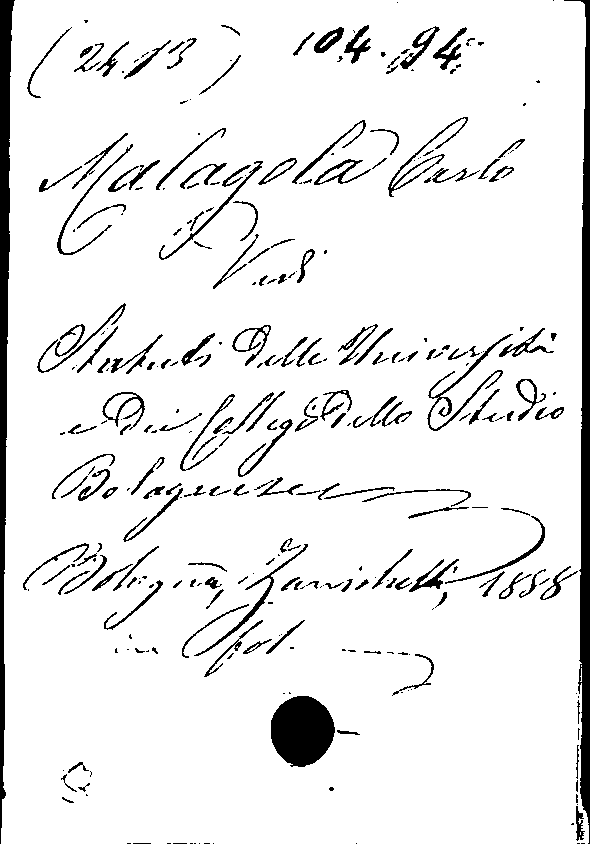 (2413) 104.94
Malagola Carlo
Vedi
Statuti delle Università
e dei Collegi dello Studio
Bolognese
Bologna, Zanichelli, 1888
in fol.